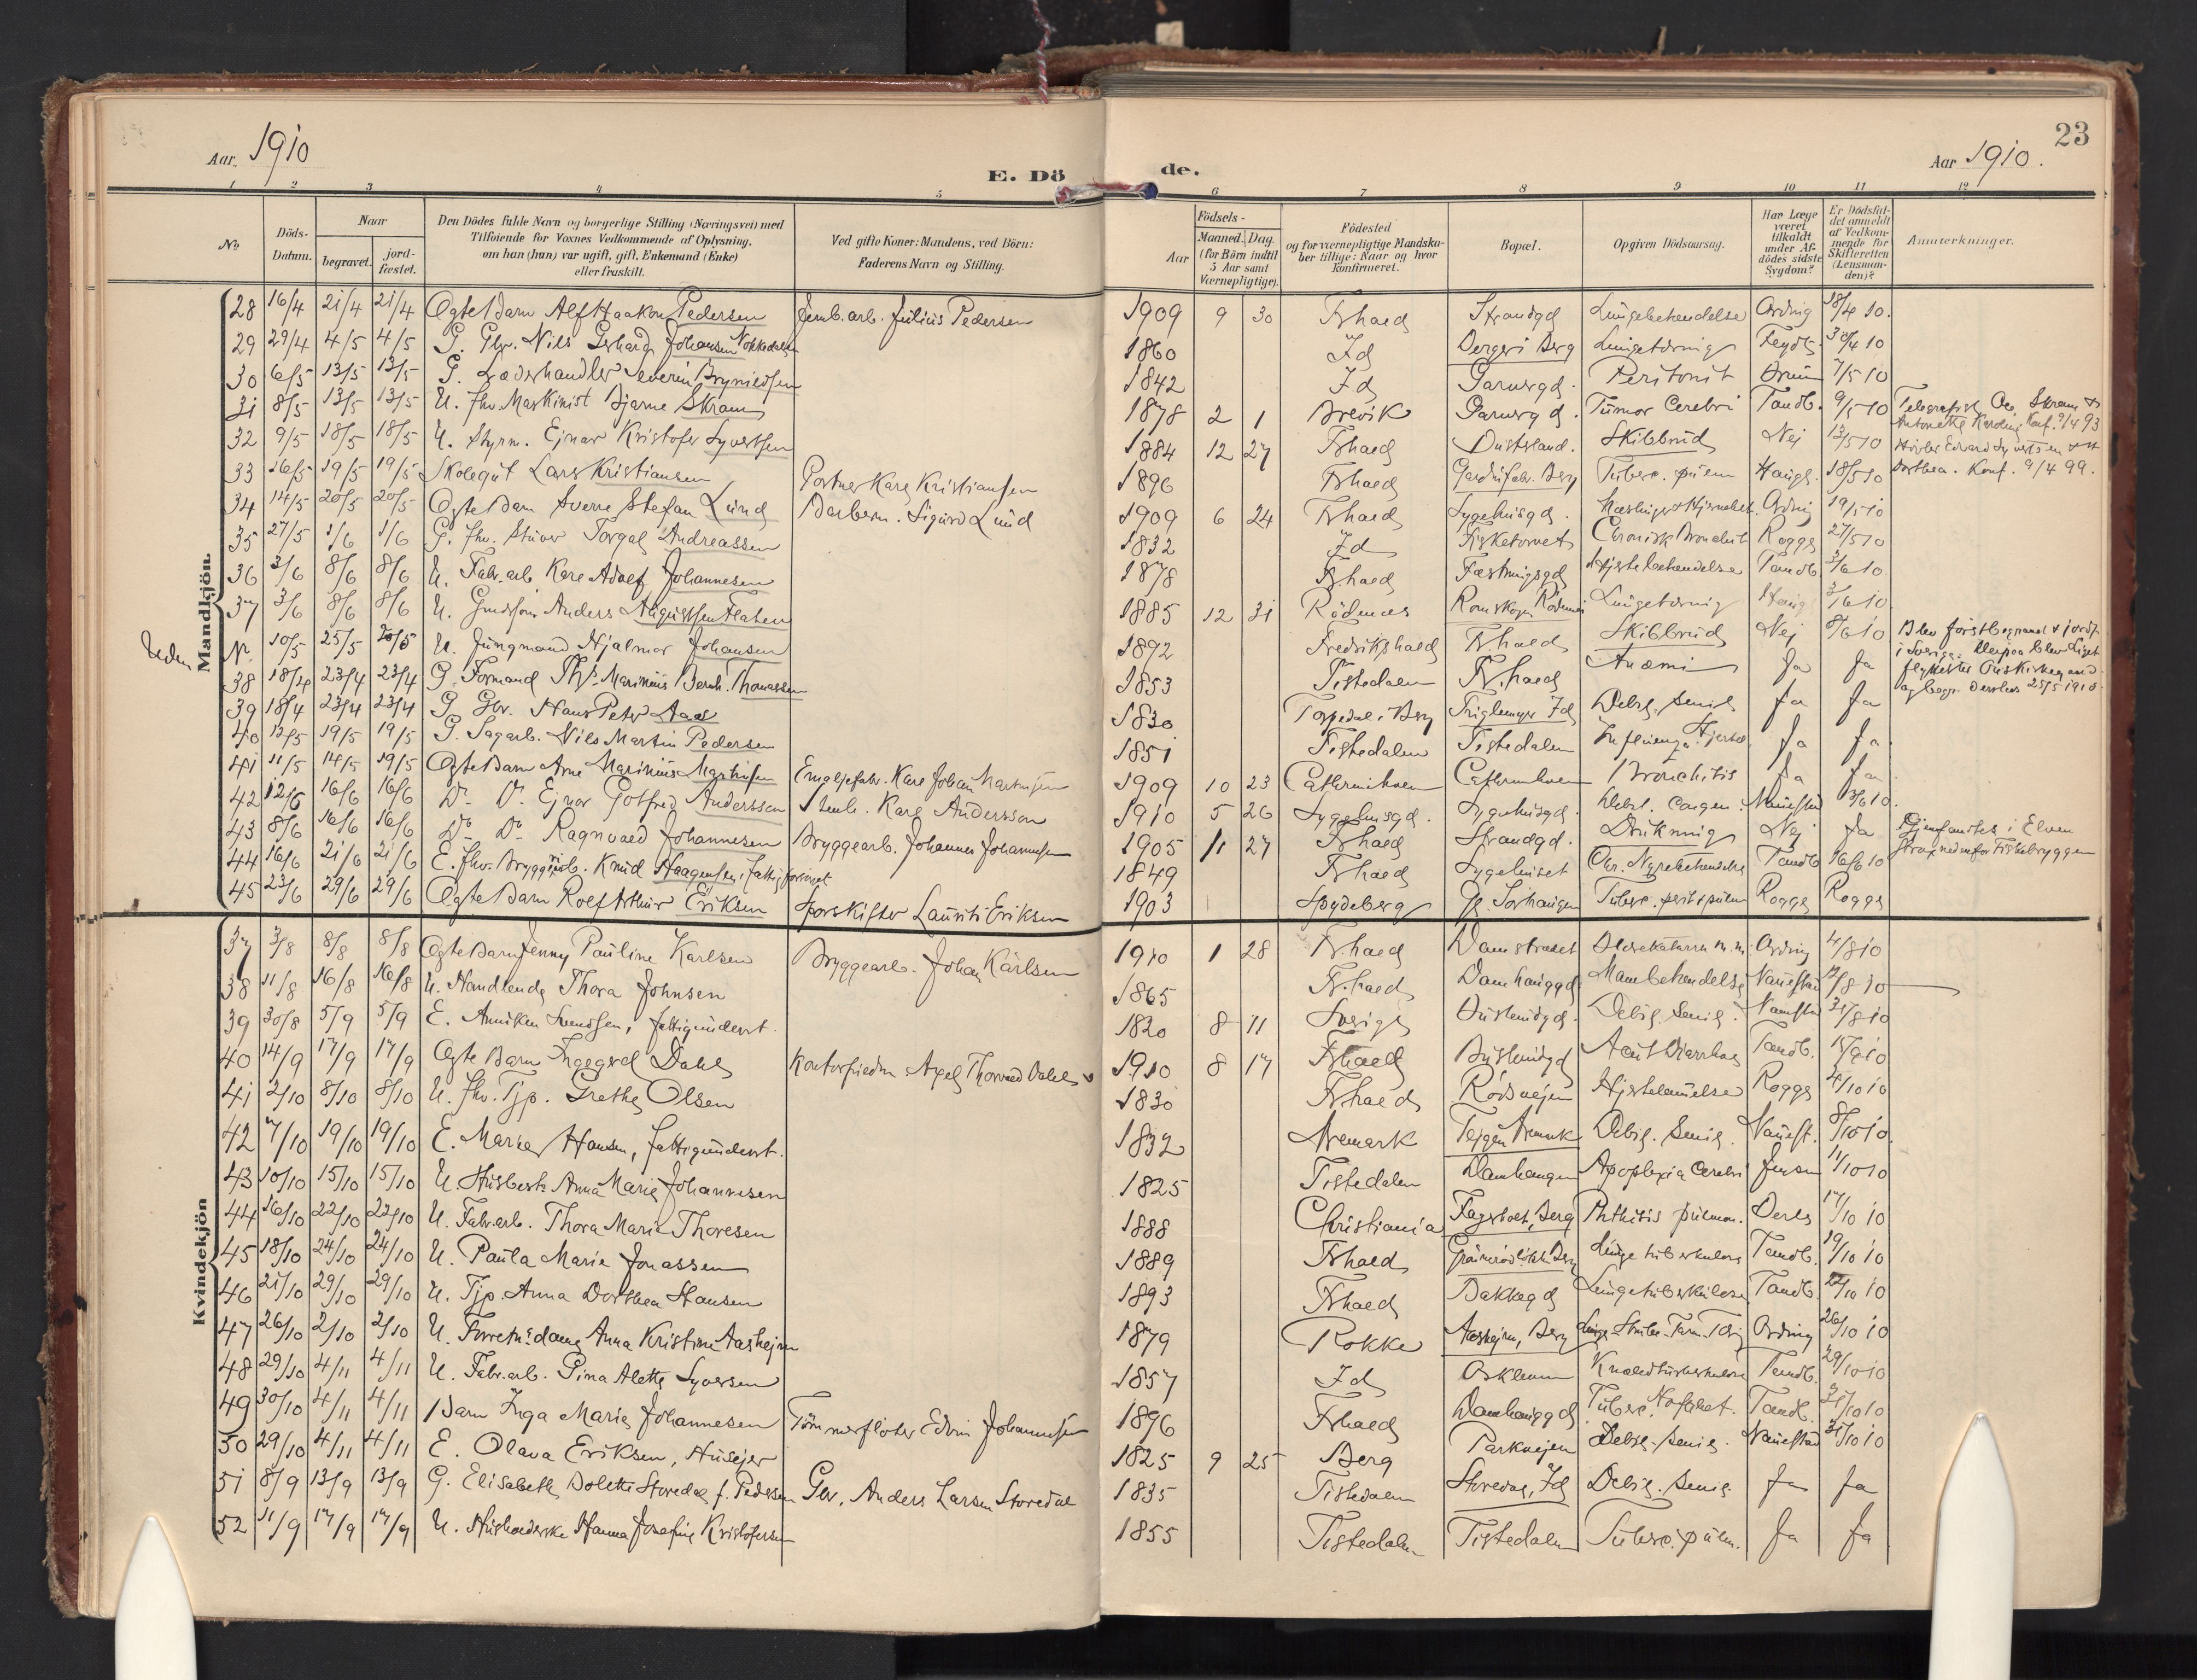 23
Aar 1910
E. Dö de.
Aar 1910.
1 2 3 4 5 6 7 8 9 10 11 12
No
Döds-Datum.
Naar
begravet. jord-fæstet.
Den Dödes fulde Navn og borgerlige Stilling (Næringsvei) med
Tilföiende for Voxnes Vedkommende af Oplysning,
om han (hun) var ugift, gift, Enkemand (Enke)
eller fraskilt.
Ved gifte Koner: Mandens, ved Börn:
Faderens Navn og Stilling.
Födsels-
Aar Maaned. Dag.
(for Börn indtil
5 Aar samt
Værnepligtige).
Födested
og for værnepligtige Mandska-
ber tillige: Naar og hvor
konfirmeret.
Bopæl.
Opgiven Dödsaarsag.
Har Læge
været
tilkaldt
under Af-
dödes sidste
Sygdom?
Er Dödsfal-
det anmeldt
af Vedkom-
mende for
Skifteretten
(Lensman-
den)?
Anmærkninger.
Mandkjön.
28 16/4 21/4 21/4 Ægte Barn Alf Haakon Pedersen Jernb.arb. Julius Pedersen 1909 9 30 Fr.hald Strandgd Lungebetendelse Ording 18/4 10.
29 29/4 4/5 4/5 G. Gbr. Nils Gerhard Johansen 1860 Id Berg Lungetæring 30/4 10
30 6/5 13/5 13/5 G. Læderhandler Severin Bryniedsen 1842 Id Garvergd. Peritonit 7/5 10
31 8/5 13/5 13/5 U. fhv. Maskinist Bjarne Skram 1878 2 1 Brevik Garvergd. Tumor Cerebri Tandb. 9/5 10
32 9/5 18/5 18/5 U. Styrm. Ejnar Kristofer Syvertsen 1884 12 27 Fr.hald Skibbrud Nej 13/5 10 Konf. 9/4 99.
33 16/5 19/5 19/5 Skolegut Lars Kristiansen Gartner Karl Kristiansen 1896 Fr.hald Berg Tuberc. pulm Haugs. 18/5 10
34 14/5 20/5 20/5 Ægte Barn Sverre Stefan Lund Barberm. Sigurd Lund 1909 6 24 Fr.hald Sygehusgd. Ording 19/5 10
35 27/5 1/6 1/6 G. fhv. Stuver Torgal Andreassen 1832 Id Fisketorvet Chronisk Bronchit Rogge 27/5 10
36 3/6 8/6 8/6 U. Fabr.arb. Karl Adolf Johannesen 1878 Fr.hald Fæstningsgd Hjertebetendelse Tandb 3/6 10
37 3/6 8/6 8/6 U. Anders Flaten 1885 12 31 Rödenæs Lungetæring 3/6 10
Uden Nr. 10/5 25/5 20/5 U. Jungmand Hjalmar Johansen 1892 Fredrikshald Fr.hald Skibbrud Nej 8/6 10 Blev först begravet & jordf. i Sverige.
38 18/4 23/4 23/4 G. Formand Ths. Marinius Bernh. Thomassen 1853 Tistedalen Fr.hald Anæmi Ja Ja
39 18/4 23/4 23/4 G. Gbr. Hans Peter Aae 1830 Torpedal i Berg Id Debil. senil Ja Ja
40 12/5 19/5 19/5 G. Sagarb. Nils Martin Pedersen 1851 Tistedalen Tistedalen Influenza Ja Ja
41 11/5 14/5 19/5 Ægte Barn Arne Marinius Martinsen Karl Johan Martinsen 1909 10 23 Bronchitis Ja Ja
42 12/6 16/6 16/6 Do. Do. Ejnar Gotfred Andersson Karl Andersson 1910 5 26 Sygehusgd. Sygehusgd. Debil. congen. 13/6 10.
43 8/6 16/6 16/6 Do. Do. Ragnvald Johannesen Bryggearb. Johannes Johannesen 1905 11 27 Fr.hald Strandgd. Drukning Nej Ja Gjenfandtes i Elven strax nedenfor Fiskebryggen
44 16/6 21/6 21/6 E. fhv. Bryggearb. Knud Haagensen, fattigforsörget 1849 Fr.hald Sygehuset Chr. Nyrebetendelse Tandb 16/6 10
45 23/6 29/6 29/6 Ægte Barn Rolf Arthur Eriksen Sporskifter Laurits Eriksen 1903 Spydeberg Rogge Rogge
Kvindekjön
37 3/8 8/8 8/8 Ægte Barn Jenny Pauline Karlsen Bryggearb. Johan Karlsen 1910 1 28 Fr.hald Damstrædet Ording 4/8 10
38 11/8 16/8 16/8 U. Handlende Thora Johnsen 1865 Fr.hald Damhauggd 12/8 10
39 30/8 5/9 5/9 E. Anniken Svendsen, fattigunderst. 1820 8 11 Sverige Debil. Senil. 31/8 10
40 14/9 17/9 17/9 Ægte Barn Ingegerd Dahl Axel Thorvald Dahl 1910 8 17 Fr.hald Acut Diarrhoe Tandb. 15/9 10
41 2/10 8/10 8/10 U. fhv. Tjp. Grethe Olsen 1830 Fr.hald Rödsvejen Hjertelammelse Rogge 4/10 10
42 7/10 19/10 19/10 E. Maria Hansen, fattigunderst. 1832 Aremark Aremark Debil. Senil. 8/10 10.
43 10/10 15/10 15/10 U. Husbest. Anna Marie Johannesen 1825 Tistedalen Damhaugen Apoplexia Cerebri Jensen 11/10 10
44 16/10 22/10 22/10 U. Fabr.arb. Thora Maria Thoresen 1888 Christiania Fagerholt, Berg Phthisis pulmon. Deres 17/10 10
45 18/10 24/10 24/10 U. Paula Marie Jonassen 1889 Fr.hald Lungetuberkulose Tandb. 19/10 10
46 21/10 29/10 29/10 U. Tjp. Anna Dorthea Hansen 1893 Fr.hald Bakkegd Lungetuberkulose Tandb. 22/10 10
47 26/10 2/10 2/10 U. Forretn.dame Anna Kristine Aashejm 1879 Rokke Aashejm, Berg Ording 26/10 10
48 29/10 4/11 4/11 U. Fabr.arb. Gina Alette Syversen 1857 Id Oskleven Knætuberkulose Tandb. 29/10 10
49 30/10 4/11 4/11 Barn Inga Marie Johannesen Tömmerflöter Edvin Johannesen 1896 Fr.hald Damhauggd Tandb. 31/10 10
50 29/10 4/11 4/11 E. Olava Eriksen, Husejer 1825 9 25 Berg Parkvejen Debil. senil. 31/10 10
51 8/9 13/9 13/9 G. Elisabeth Bolette Storedal f. Pedersen Gbr. Anders Larsen Storedal 1835 Tistedalen Storedal, Id Debil. senil Ja Ja
52 11/9 17/9 17/9 U. Husholderske Hanna Josefine Kristofersen 1855 Tistedalen Tistedalen Tuberc. pulm. Ja Ja